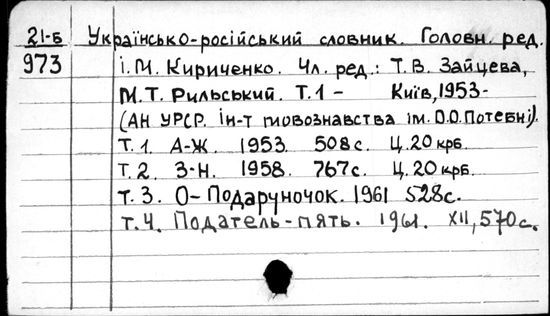 21-Б Українсько-російський словник. Головн. ред.
973 І.М. Кириченко. Чл. ред.: Т.В. Зайцева,
М.Т. Рильський. Т.1 – Київ, 1953-
(АН УРСР. Ін-т мовознавства ім. О.О.Потебні).
Т.1. А-Ж. 1953. 508с. Ц.20 крб.
Т.2. З-Н. 1958. 767с. Ц.20 крб.
Т.3. О-Подаруночок. 1961 528с.
т.4. Податель-пять. 1961. XII, 570с.